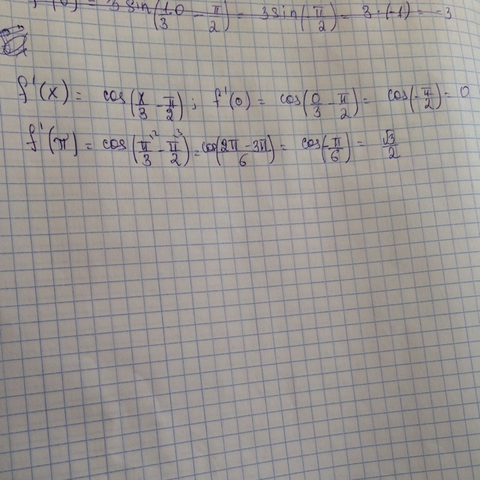 f'(0) = 3 sin(1/3·0 - π/2) = 3 sin(π/2) = 3·(-1) = -3
f'(x) = cos(x/3 - π/2); f'(0) = cos(0/3 - π/2) = cos(-π/2) = 0
f'(π) = cos(π/3 - π/2) = cos(2π-3π/6) = cos(-π/6) = √3/2